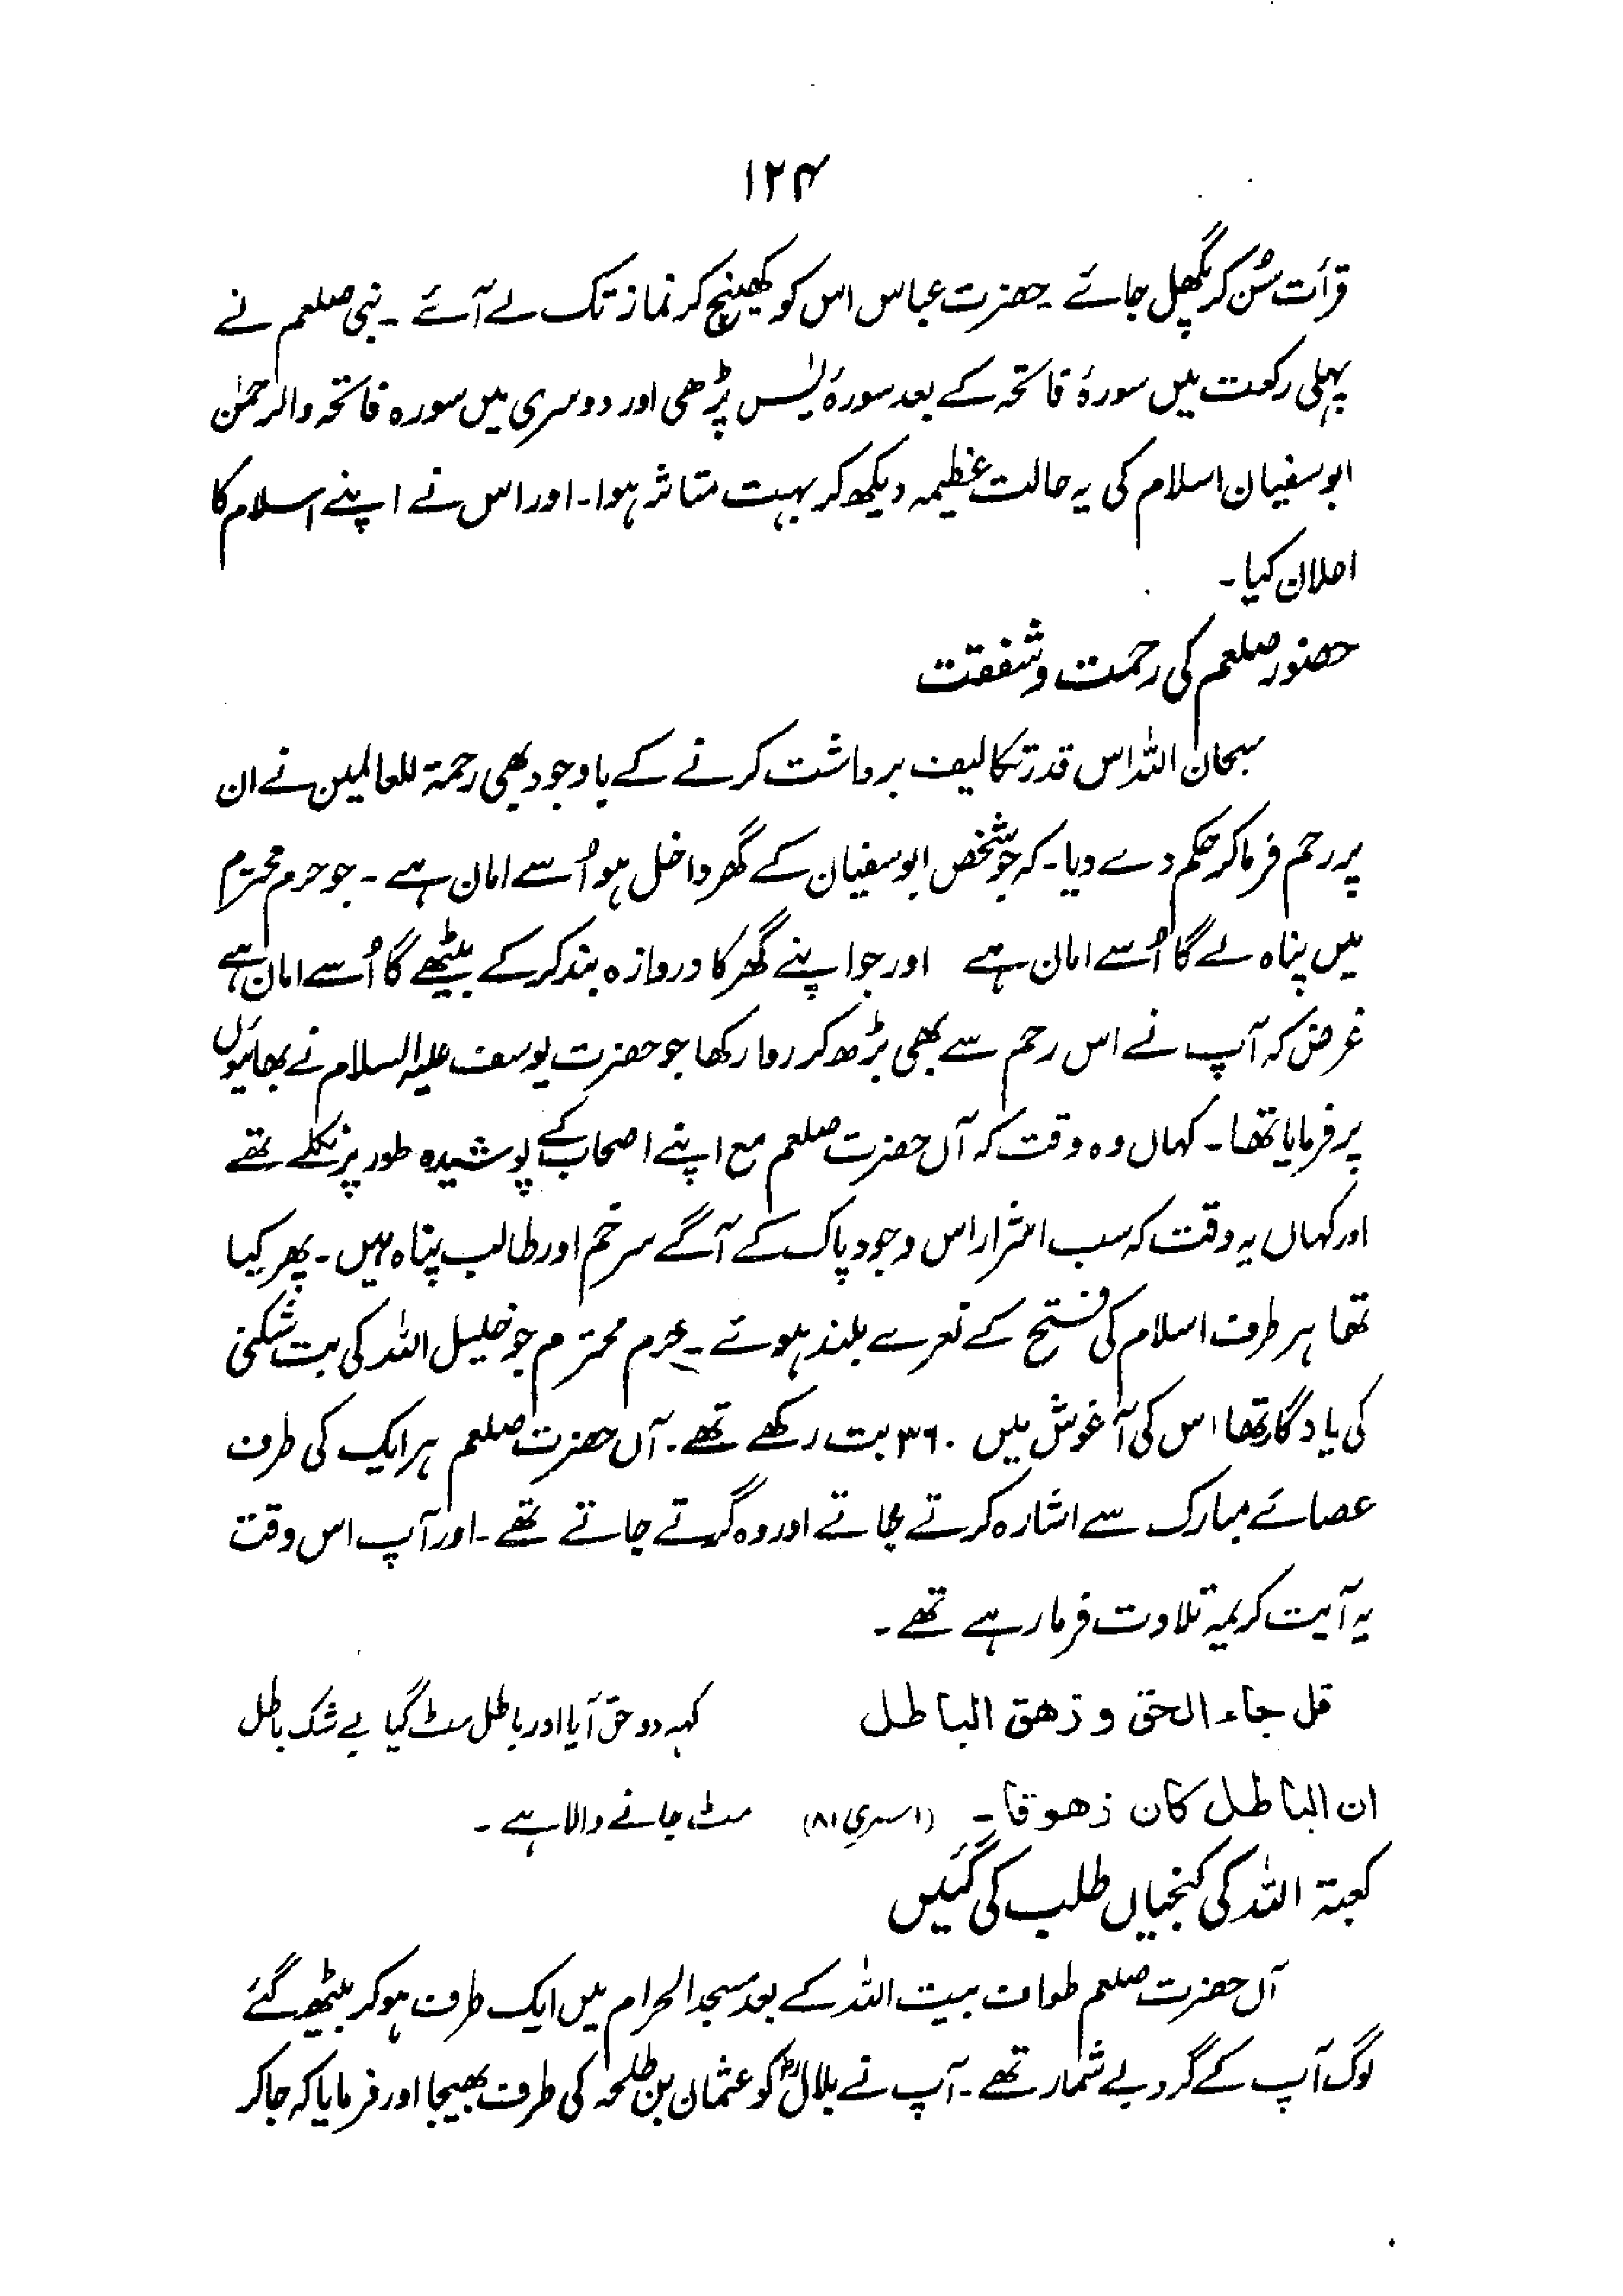 ۱۲۴
قرأت سُن کر پگھل جائے ۔ حضرت عباس اس کو کھینچ کر نماز تک لے آئے ۔ نبی صلعم نے
پہلی رکعت میں سورۂ فاتحہ کے بعد سورۂ یٰس پڑھی اور دوسری میں سورہ فاتحہ والرحمٰن
ابوسفیان اسلام کی یہ حالت عظیمہ دیکھ کر بہت متاثر ہوا ۔ اور اس نے اپنے اسلام کا
اعلان کیا ۔
حضور صلعم کی رحمت و شفقت
سبحان اللہ اس قدر تکالیف برداشت کرنے کے باوجود بھی رحمۃ للعالمین نے ان
پر رحم فرما کر حکم دے دیا ۔ کہ جو شخص ابوسفیان کے گھر داخل ہو اُسے امان ہے ۔ جو حرم محترم
میں پناہ لے گا اُسے امان ہے اور جو اپنے گھر کا دروازہ بند کر کے بیٹھے گا اُسے امان ہے
غرض کہ آپ نے اس رحم سے بھی بڑھ کر روا رکھا جو حضرت یوسف علیہ السلام نے بھائیوں
پر فرمایا تھا ۔ کہاں وہ وقت کہ آں حضرت صلعم مع اپنے اصحاب کے پوشیدہ طور پر نکلے تھے
اور کہاں یہ وقت کہ سب اشرار اس وجود پاک کے آگے سر خم اور طالب پناہ ہیں ۔ پھر کیا
تھا ہر طرف اسلام کی فتح کے نعرے بلند ہوئے ۔ حرم محترم جو خلیل اللہ کی بت شکنی
کی یادگار تھا اس کی آغوش میں ۳۶۰ بت رکھے تھے ۔ آں حضرت صلعم ہر ایک کی طرف
عصائے مبارک سے اشارہ کرتے جاتے اور وہ گرتے جاتے تھے ۔ اور آپ اس وقت
یہ آیت کریمہ تلاوت فرما رہے تھے ۔
قل جاء الحق و زهق الباطل کہہ دو حق آیا اور باطل مٹ گیا بے شک باطل
ان الباطل کان زهوقا ۔ (اسریٰ ۸۱) مٹ جانے والا ہے ۔
کعبۃ اللہ کی کنجیاں طلب کی گئیں
آں حضرت صلعم طواف بیت اللہ کے بعد مسجد الحرام میں ایک طرف ہو کر بیٹھ گئے
لوگ آپ کے گرد بے شمار تھے ۔ آپ نے بلالؓ کو عثمان بن طلحہ کی طرف بھیجا اور فرمایا کہ جا کر